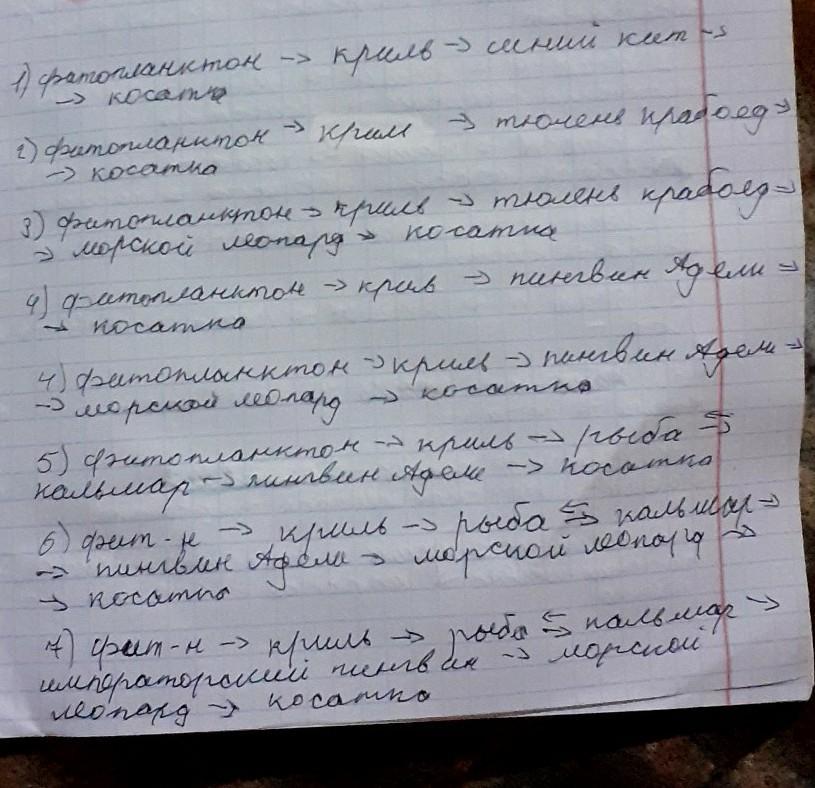 1) фитопланктон → криль → синий кит →
→ косатка
2) фитопланктон → крилм → тюлень крабоед →
→ косатка
3) фитопланктон → криль → тюлень крабоед →
→ морской леопард → косатка
4) фитопланктон → крив → пингвин Адели →
→ косатка
4) фитопланктон → криль → пингвин Адели →
→ морской леопард → косатка
5) фитопланктон → криль → рыба ⇆
кальмар → пингвин Адели → косатка
6) фит-н → криль → рыба ⇆ кальмар →
→ пингвин Адели → морской леопард →
→ косатка
7) фит-н → криль → рыба ⇆ кальмар →
импораторский пингвин → морской
леопард → косатка